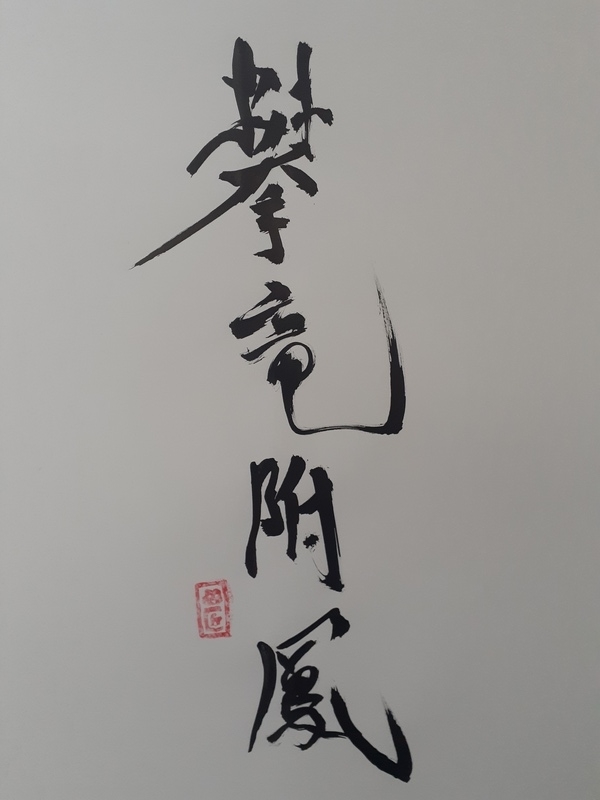 攀竜附鳳